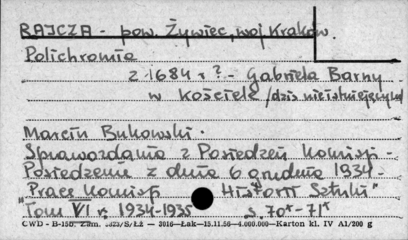 RAJCZA - pow. Żywiec, woj Kraków.
Polichromia
z 1684 r ? - Gabriela Barny
w kościele /dziś nieistniejącym/
Marcin Bukowski.
Sprawozdania z Posiedzeń Komisji -
Posiedzenie z dnia 6 grudnia 1934 -
"Prace Komisji Historii Sztuki"
Tom VI r. 1934-1935 S. 70* - 71*
CWD - B-158. Zam. S/Łż — 3016—Łak—15.11.56—4.000.000—Karton kl. IV A1/200 g